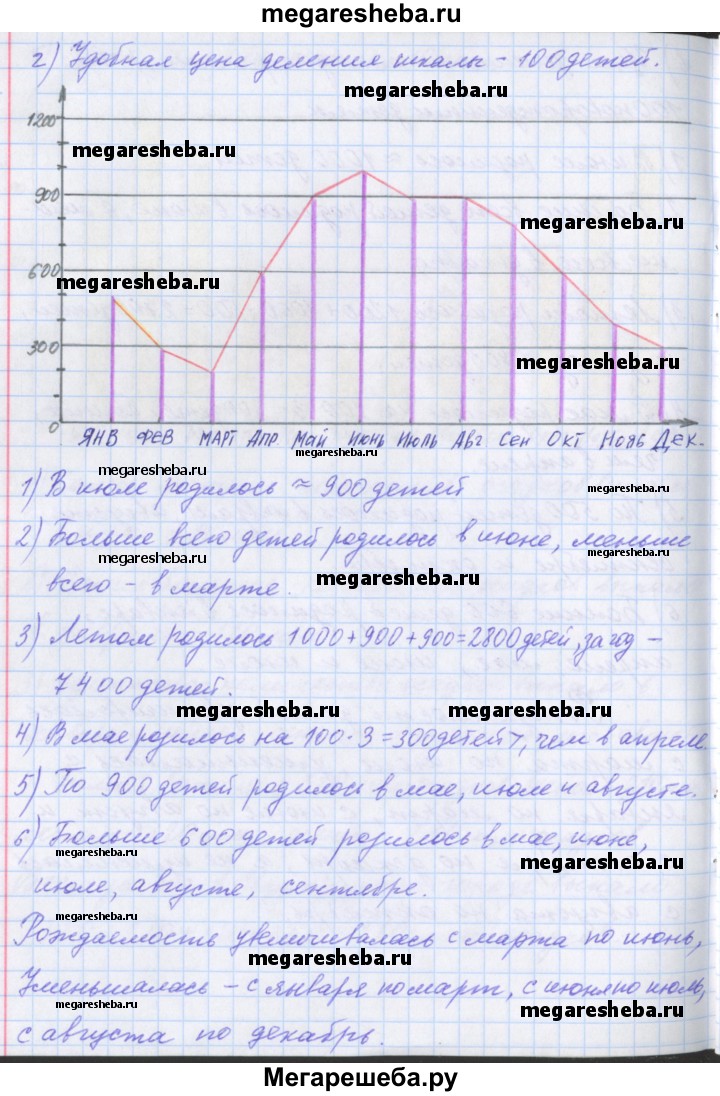 megaresheba.ru
2) Удобная цена деления шкалы - 100 детей.
megaresheba.ru
1200
megaresheba.ru
900
megaresheba.ru
600
megaresheba.ru
300
megaresheba.ru
0
ЯНВ ФЕВ МАРТ АПР Май Июнь Июль Авг Сен Окт Нояб Дек.
megaresheba.ru
1) В июле родилось ≈ 900 детей
megaresheba.ru
2) Больше всего детей родилось в июне, меньше
megaresheba.ru
megaresheba.ru
всего - в марте.
megaresheba.ru
3) Летом родилось 1000+900+900=2800 детей, за год -
7400 детей.
megaresheba.ru
megaresheba.ru
4) В мае родилось на 100·3=300 детей >, чем в апреле
5) По 900 детей родилось в мае, июле и августе.
megaresheba.ru
6) Больше 600 детей родилось в мае, июне,
megaresheba.ru
megaresheba.ru
июле, августе, сентябре.
megaresheba.ru
Рождаемость увеличивалась с марта по июнь,
megaresheba.ru
Уменьшалась - с января по март, с июня по июль,
megaresheba.ru
megaresheba.ru
с августа по декабрь.
megaresheba.ru
Мегарешеба.ру